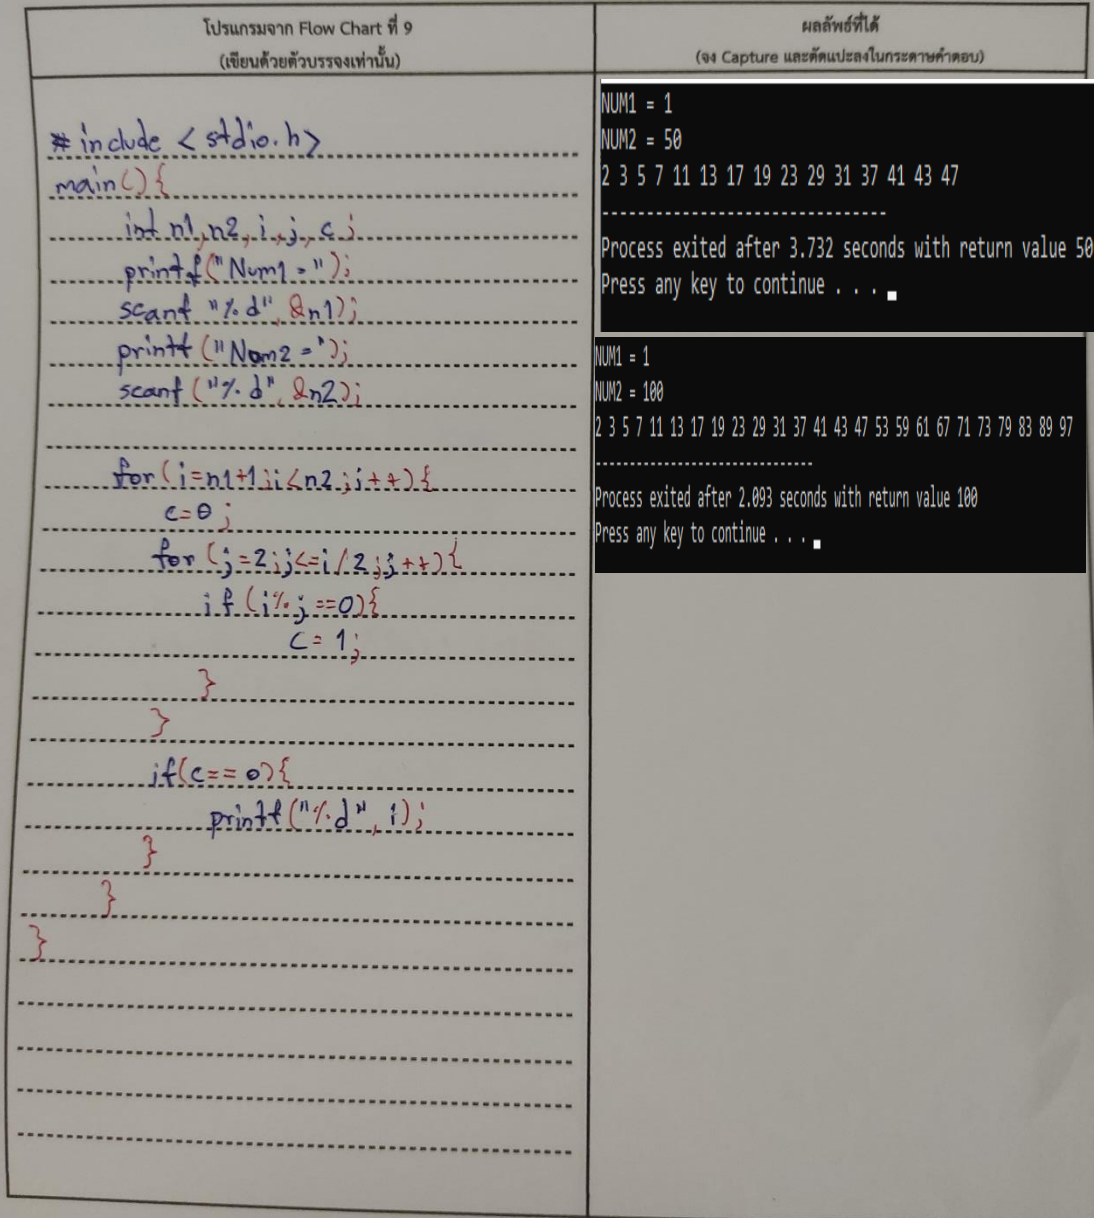 โปรแกรมจาก Flow Chart ที่ 9
(เขียนด้วยตัวบรรจงเท่านั้น)
# include < stdio.h>
main(){
int n1,n2,i,j,c;
printf("Num1 =");
scanf "%d", &n1);
printf ("Nom2 =");
scanf ("%d", &n2);
for(i=n1+1;i<n2;i++){
c=0;
for (j=2;j<=i/2;j++){
if (i%j==0){
c= 1;
}
}
if(c== 0){
printf ("%d", i);
}
}
}
ผลลัพธ์ที่ได้
(จง Capture และตัดแปะลงในกระดาษคำตอบ)
NUM1 = 1
NUM2 = 50
2 3 5 7 11 13 17 19 23 29 31 37 41 43 47
--------------------------------
Process exited after 3.732 seconds with return value 50
Press any key to continue . . .
NUM1 = 1
NUM2 = 100
2 3 5 7 11 13 17 19 23 29 31 37 41 43 47 53 59 61 67 71 73 79 83 89 97
--------------------------------
Process exited after 2.093 seconds with return value 100
Press any key to continue . . .